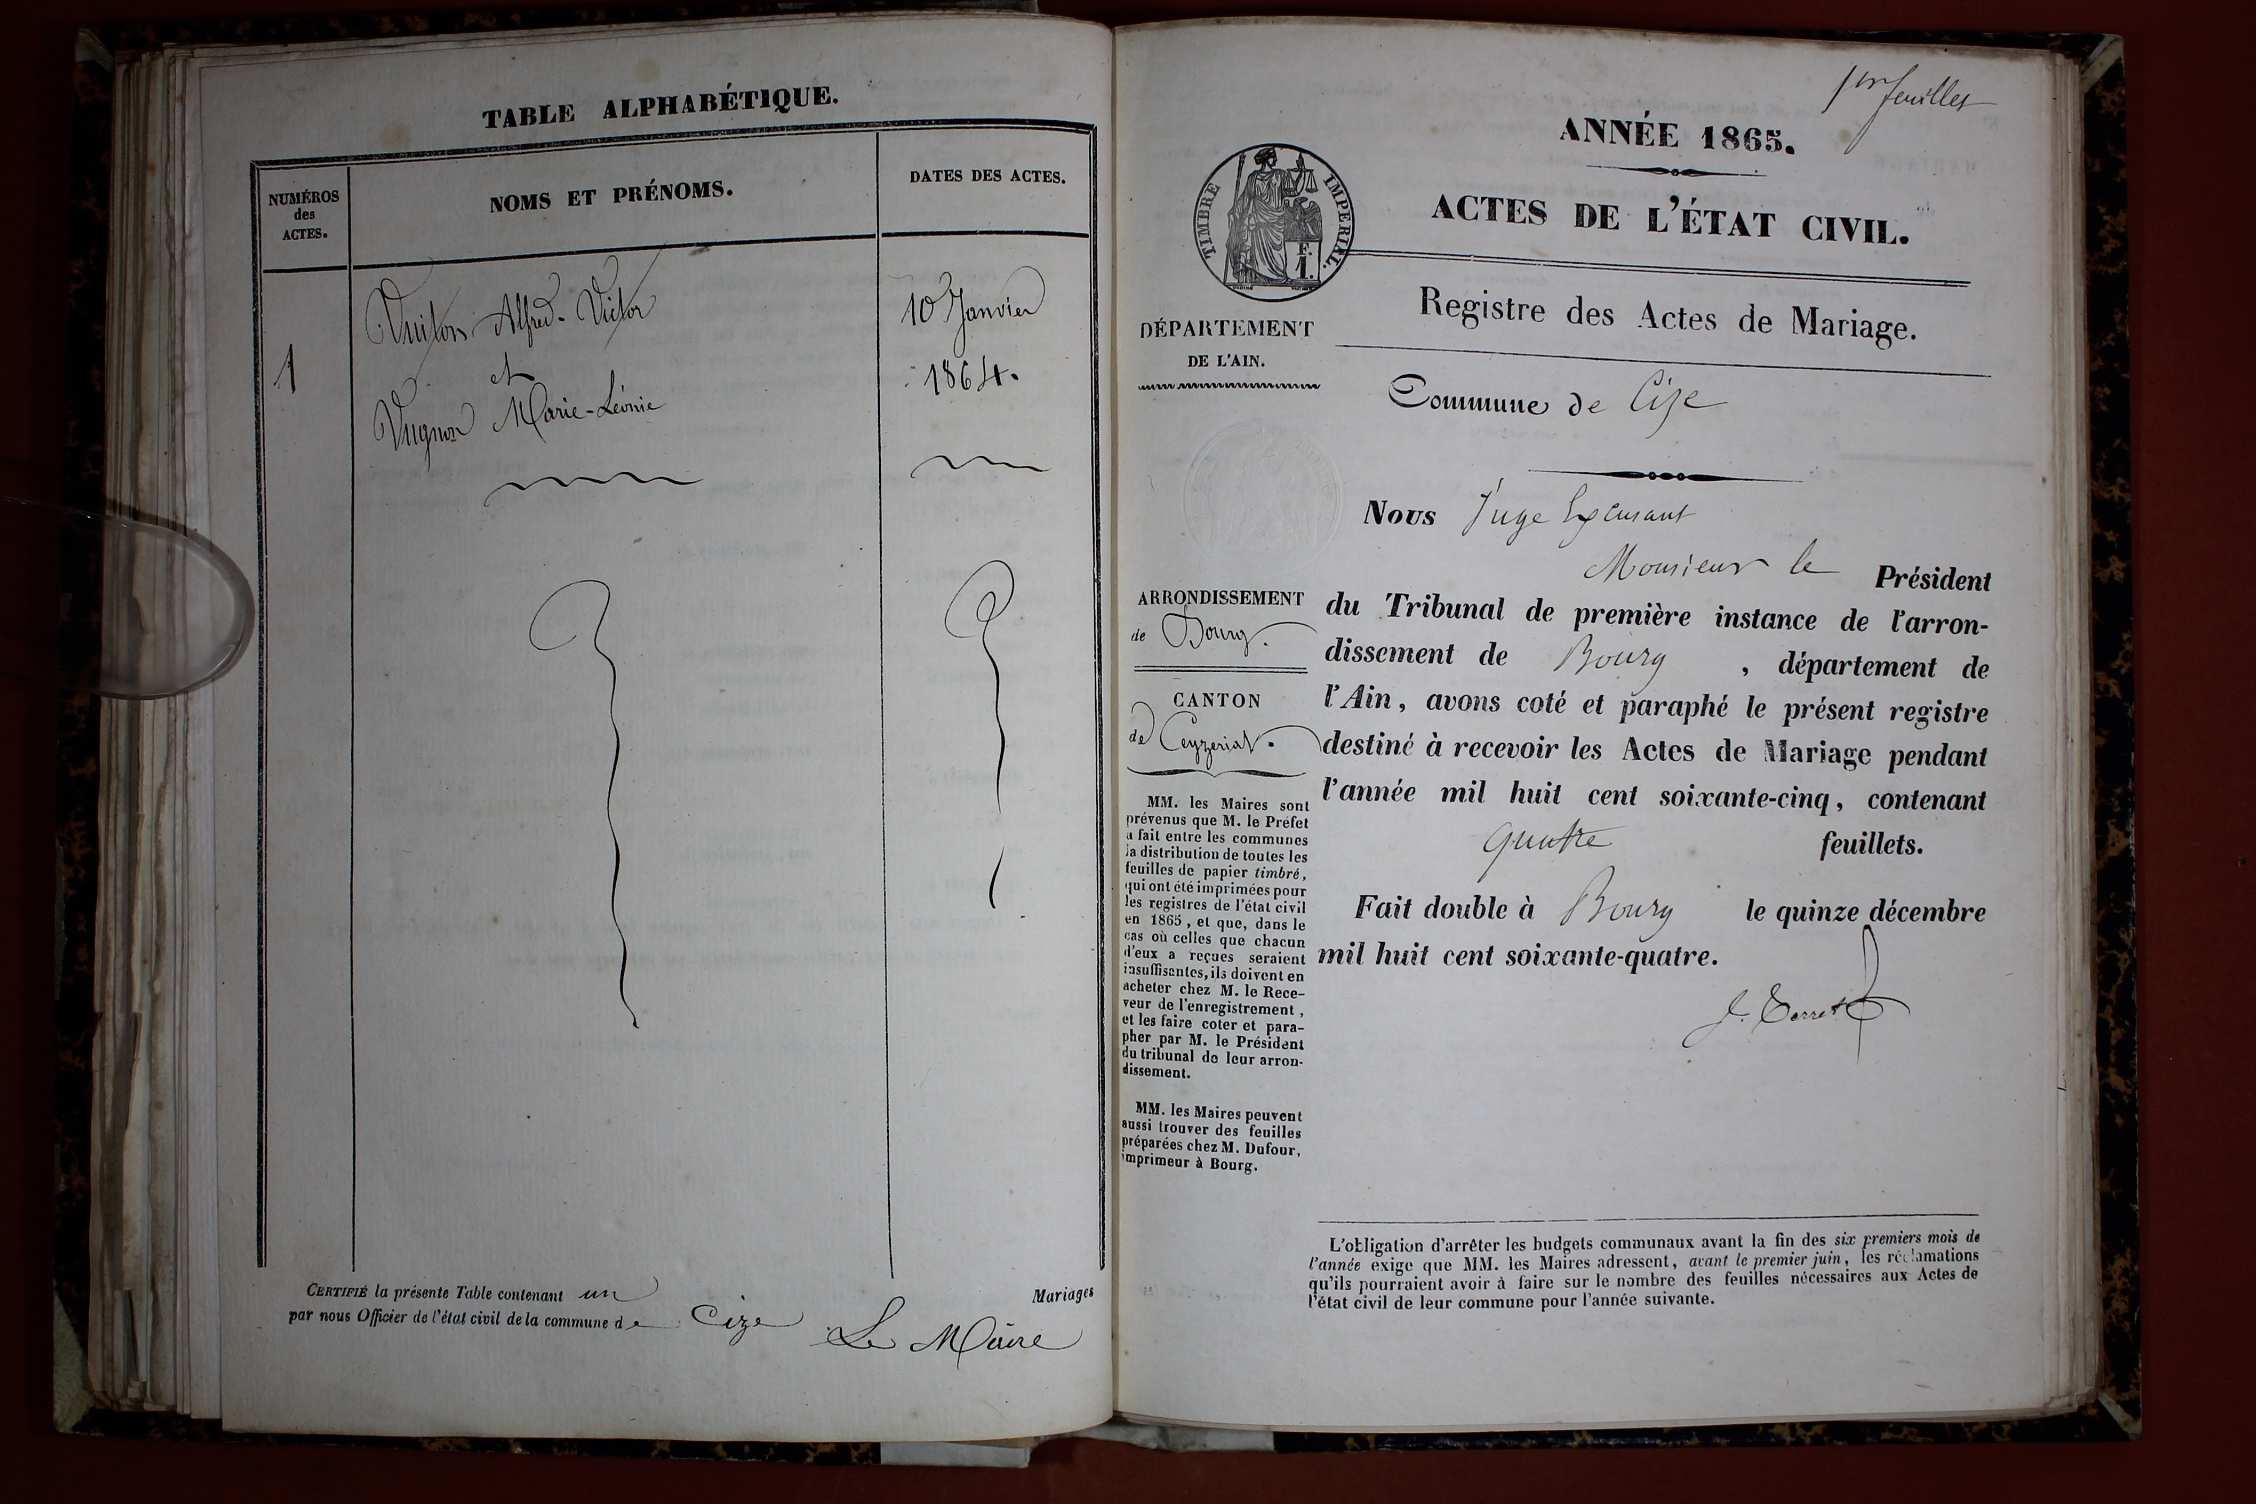 TABLE ALPHABÉTIQUE.
NUMÉROS
des
ACTES.
NOMS ET PRÉNOMS.
DATES DES ACTES.
Vuiton Alfred-Victor
10 Janvier
1
et
1864.
Vugnon Marie-Léonie
CERTIFIÉ la présente Table contenant un Mariages
par nous Officier de l'état civil de la commune de Cize
Le Maire
1er feuillet
ANNÉE 1865.
TIMBRE IMPERIAL.
F.
1.
ACTES DE L'ÉTAT CIVIL.
Registre des Actes de Mariage.
DÉPARTEMENT
DE L'AIN.
Commune de Cize
Nous Juge
Monsieur le Président
du Tribunal de première instance de l'arron-
dissement de Bourg, département de
l'Ain, avons coté et paraphé le présent registre
destiné à recevoir les Actes de Mariage pendant
l'année mil huit cent soixante-cinq, contenant
quatre feuillets.
Fait double à Bourg le quinze décembre
mil huit cent soixante-quatre.
ARRONDISSEMENT
de Bourg.
CANTON
de Ceyzeriat.
MM. les Maires sont
prévenus que M. le Préfet
a fait entre les communes
la distribution de toutes les
feuilles de papier timbré,
qui ont été imprimées pour
les registres de l'état civil
en 1865, et que, dans le
cas où celles que chacun
d'eux a reçues seraient
insuffisantes, ils doivent en
acheter chez M. le Rece-
veur de l'enregistrement,
et les faire coter et para-
pher par M. le Président
du tribunal de leur arron-
dissement.
MM. les Maires peuvent
aussi trouver des feuilles
préparées chez M. Dufour,
imprimeur à Bourg.
L'obligation d'arrêter les budgets communaux avant la fin des six premiers mois de
l'année exige que MM. les Maires adressent, avant le premier juin, les réclamations
qu'ils pourraient avoir à faire sur le nombre des feuilles nécessaires aux Actes de
l'état civil de leur commune pour l'année suivante.